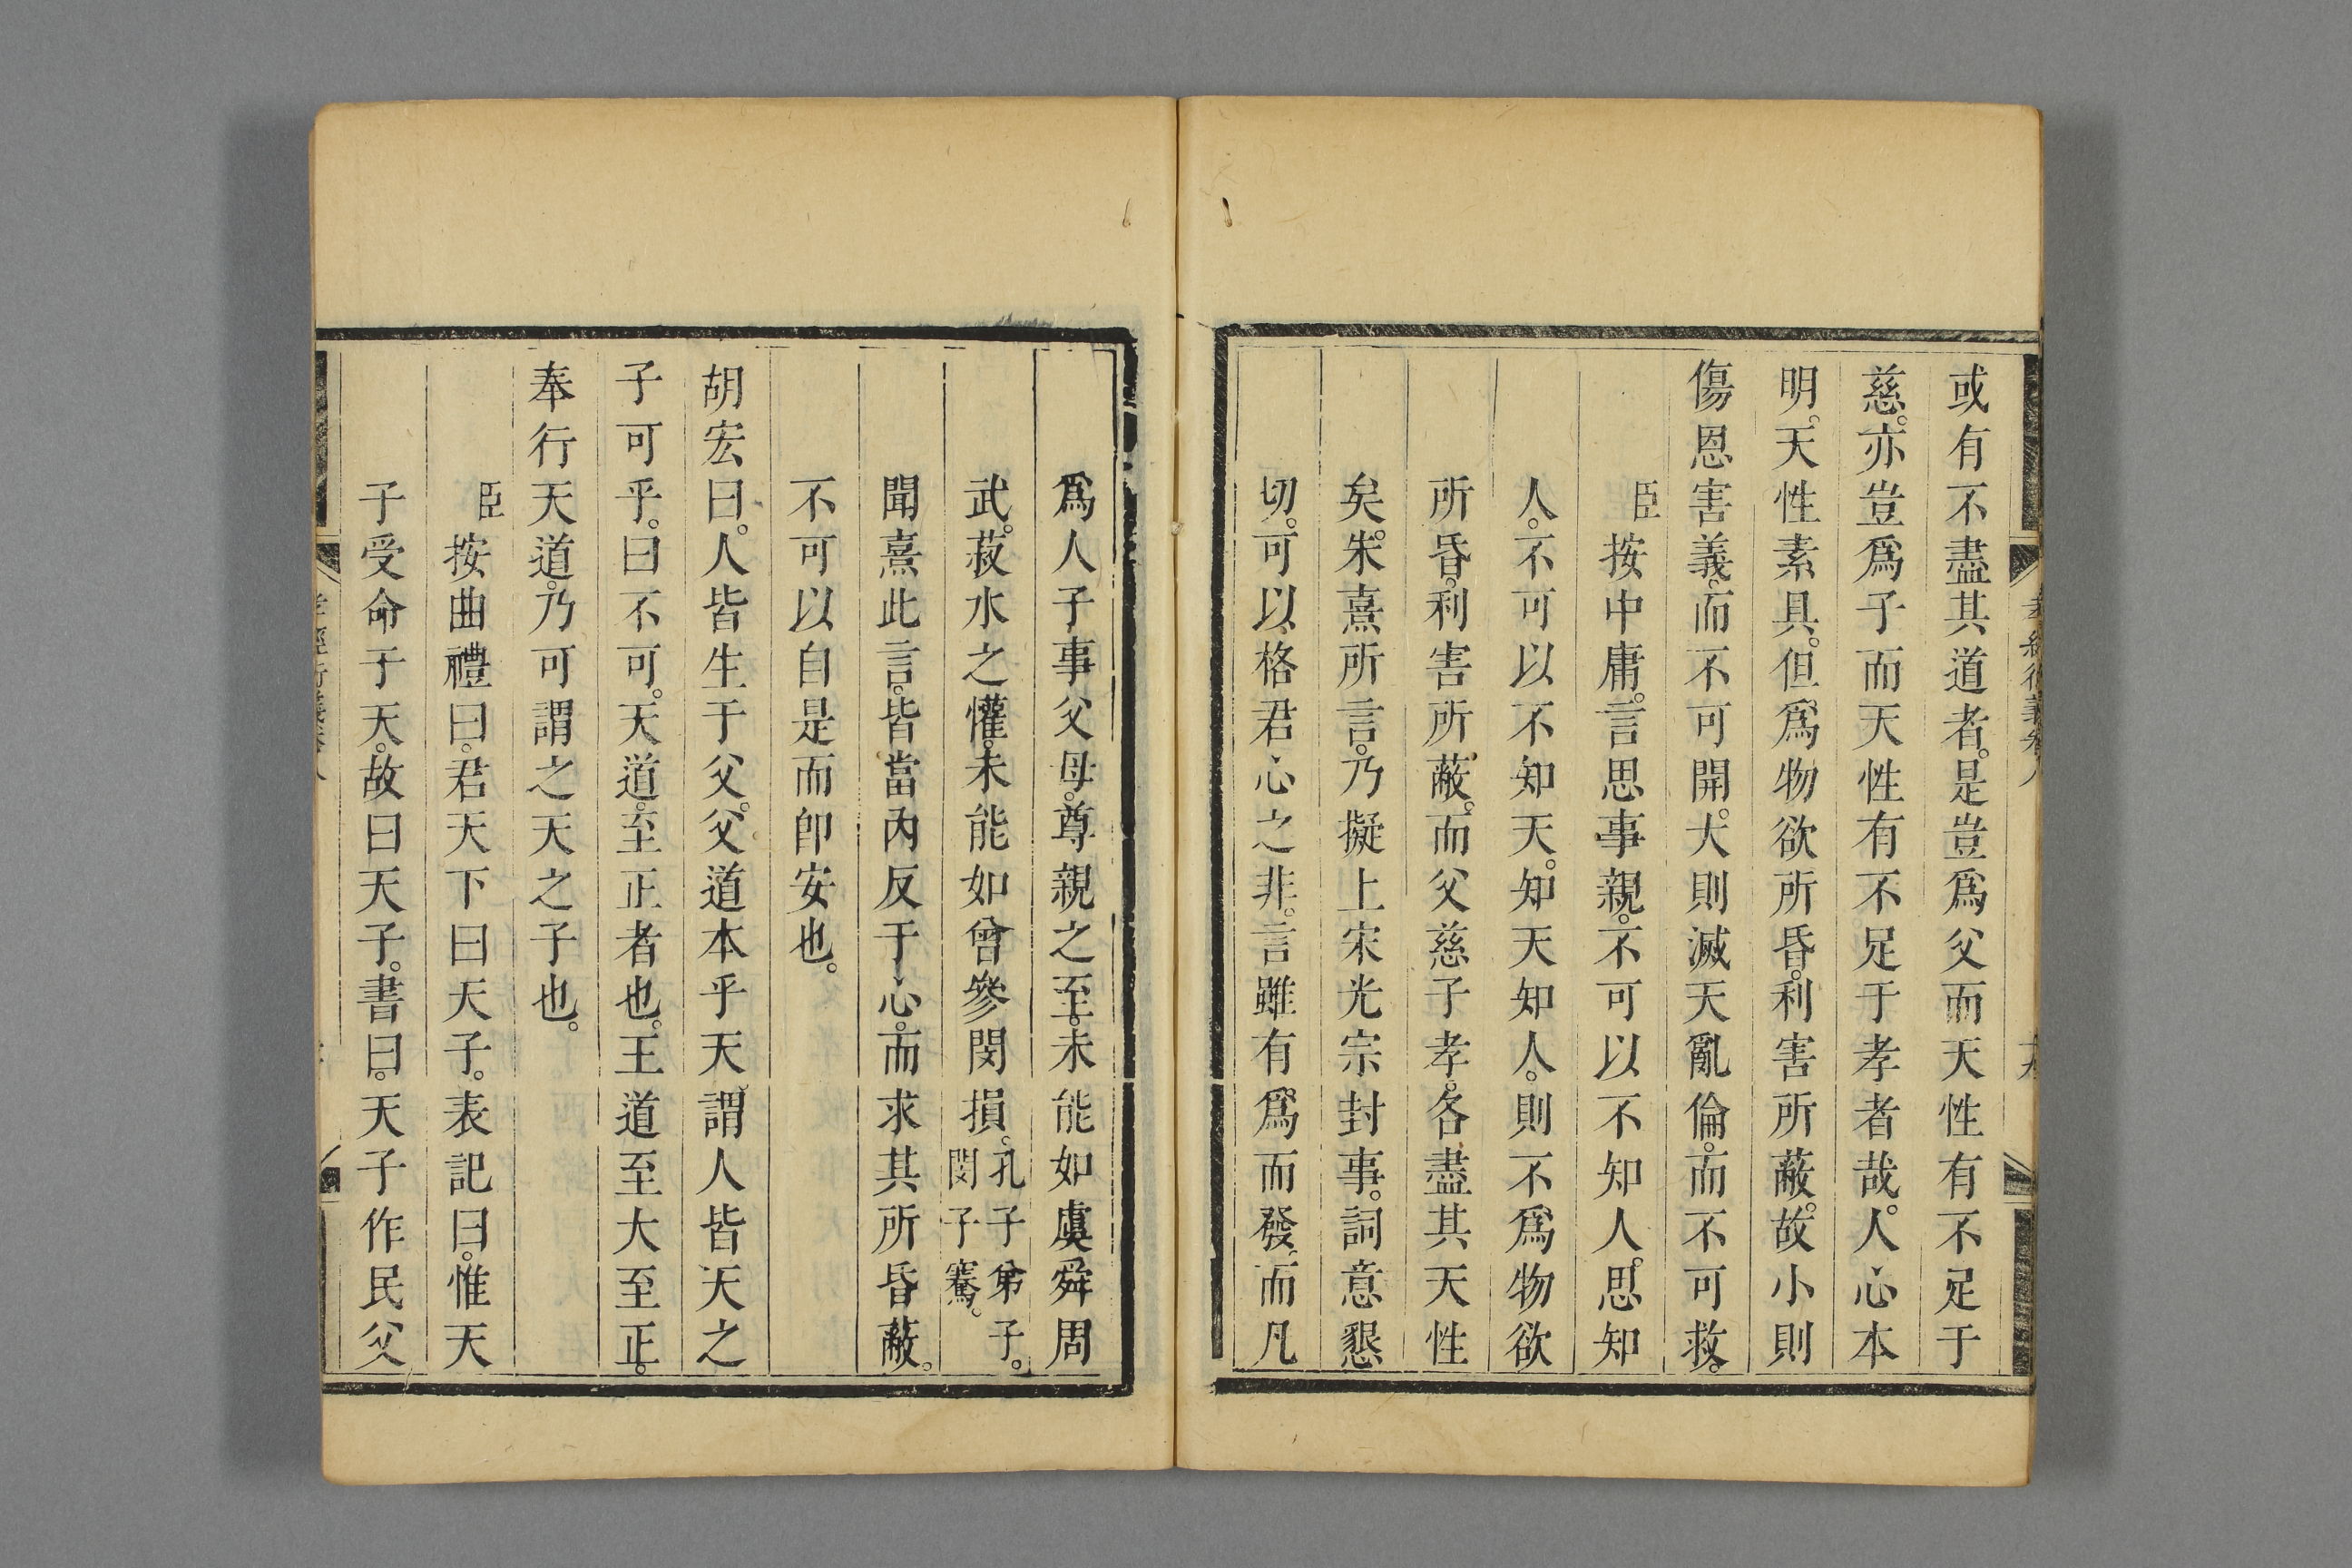 或有不盡其道者。是豈爲父而天性有不足于
慈。亦豈爲子而天性有不足于孝者哉。人心本
明。天性素具。但爲物欲所昏。利害所蔽。故小則
傷恩害義。而不可開。大則滅天亂倫。而不可救。
臣按中庸。言思事親。不可以不知人。思知
人。不可以不知天。知天知人。則不爲物欲
所昏。利害所蔽。而父慈子孝。各盡其天性
矣。朱熹所言。乃擬上宋光宗封事。詞意懇
切。可以格君心之非。言雖有爲而發。而凡
爲人子事父母。尊親之至。未能如虞舜周
武。菽水之懽。未能如曾參閔損。孔子弟子。閔子騫。
聞熹此言。皆當內反于心。而求其所昏蔽。
不可以自是而卽安也。
胡宏曰。人皆生于父。父道本乎天。謂人皆天之
子可乎。曰不可。天道。至正者也。王道至大至正。
奉行天道。乃可謂之天之子也。
臣按曲禮曰。君天下曰天子。表記曰。惟天
子受命于天。故曰天子。書曰。天子作民父